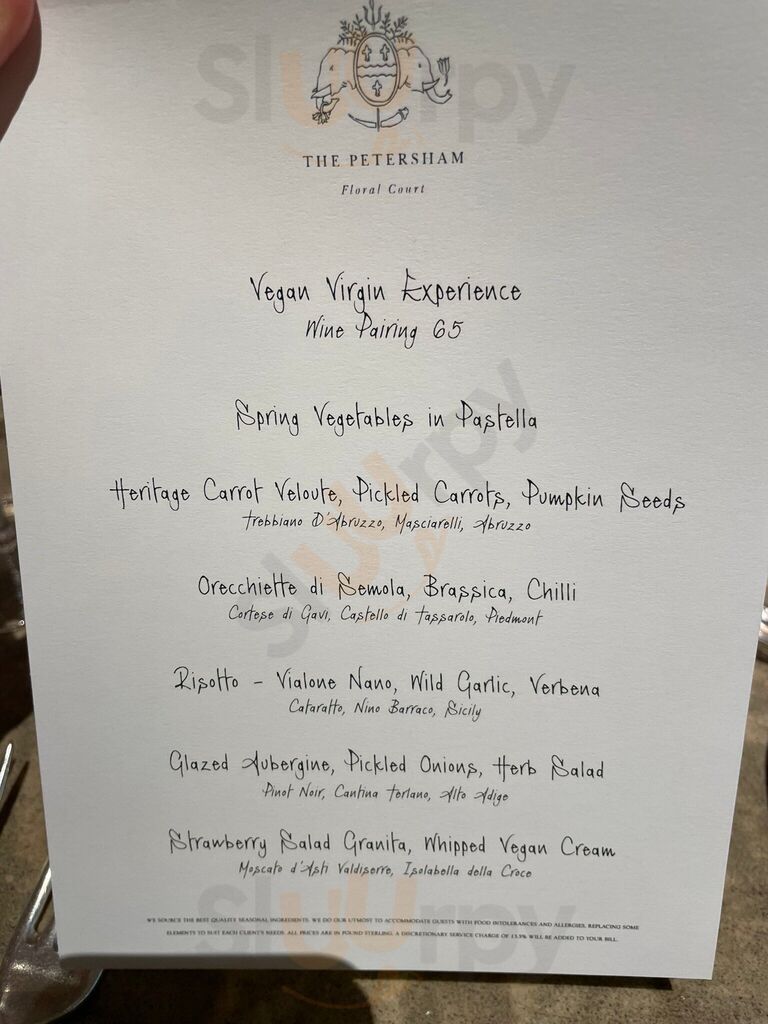 THE PETERSHAM
Floral Court
Vegan Virgin Experience
Wine Pairing 65
Spring Vegetables in Pastella
Heritage Carrot Veloute, Pickled Carrots, Pumpkin Seeds
Trebbiano D'Abruzzo, Masciarelli, Abruzzo
Orecchiette di Semola, Brassica, Chilli
Cortese di Gavi, Castello di Tassarolo, Piedmont
Risotto - Vialone Nano, Wild Garlic, Verbena
Cataratto, Nino Barraco, Sicily
Glazed Aubergine, Pickled Onions, Herb Salad
Pinot Noir, Cantina Terlano, Alto Adige
Strawberry Salad Granita, Whipped Vegan Cream
Moscato d'Asti Valdiserre, Isolabella della Croce
WE SOURCE THE BEST QUALITY SEASONAL INGREDIENTS. WE DO OUR UTMOST TO ACCOMMODATE GUESTS WITH FOOD INTOLERANCES AND ALLERGIES, REPLACING SOME
ELEMENTS TO SUIT EACH CLIENT'S NEEDS. ALL PRICES ARE IN POUND STERLING. A DISCRETIONARY SERVICE CHARGE OF 13.5% WILL BE ADDED TO YOUR BILL.
Sluurpy
Sluurpy
Sluurpy